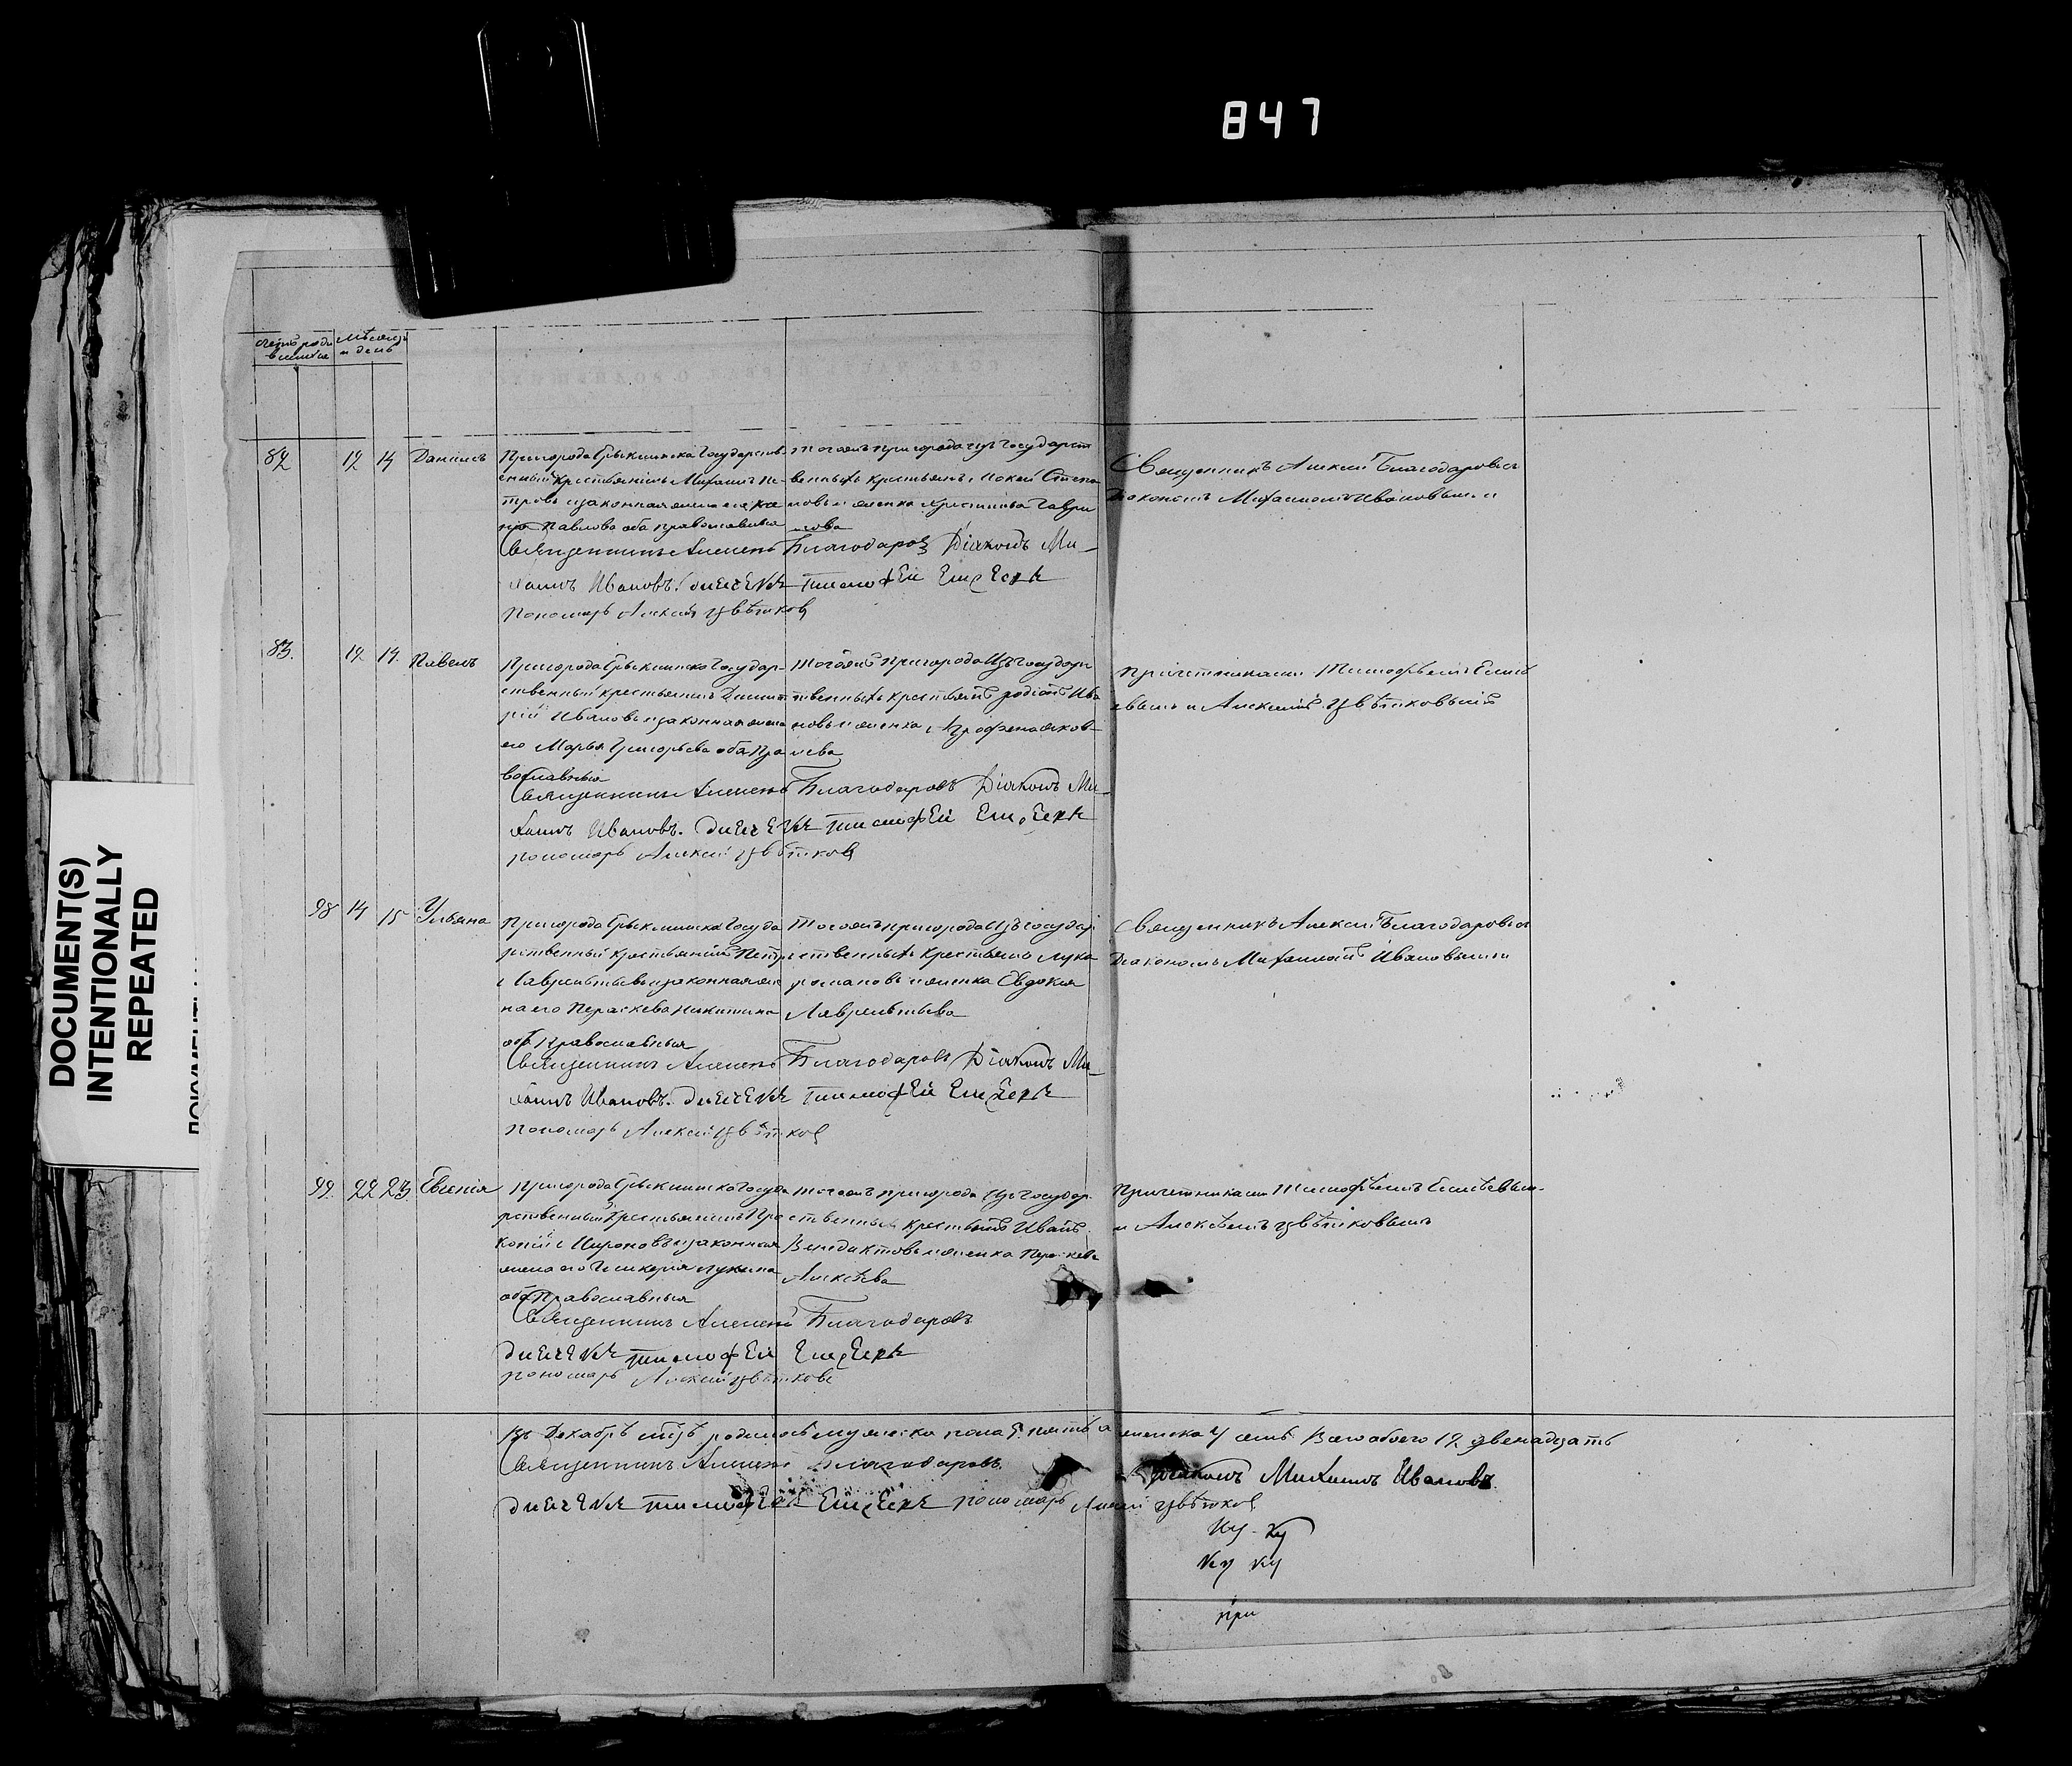 847
DOCUMENT(S)
INTENTIONALLY
REPEATED
счетъ роди
вшихся
мѣсяцъ
и день
82 12 14 Даніилъ
Пригорода Государств
енный крестьянинъ Михаилъ Пе
тровъ и законная жена его
Павлова оба православныя
Тогожъ пригорода изъ государст
венныхъ крестьянъ
новъ и женка Христинья Гаври
лова
Священникъ Алексій Благодаровъ
діакономъ Михаиломъ Ивановымъ
Священникъ Алексей Благодаровъ Діаконъ Ми-
хаилъ Ивановъ. дьячекъ тимофей
Пономарь Алексѣй Цвѣтковъ
83. 12 14. Павелъ
Пригорода Государ-
ственный крестьянинъ Димит
рій Ивановъ и законная жена
его Марья Григорьева оба пра
вославныя
Тогожъ Пригорода Изъ государ
ственныхъ крестьянъ родіонъ Ива
новъ и женка Агрофена яков-
лева
Причетниками Тимофѣемъ Елисѣ
евымъ и Алексіемъ Цвѣтковымъ
Священникъ Алексей Благодаровъ Діаконъ Ми-
хаилъ Ивановъ. дьячекъ тимофей
пономарь Алексій Цвѣтковъ
98 14 15 Ульяна
Пригорода Госуда
рственный крестьянинъ Петръ
Лаврентьевъ и законная же
на его Параскева Никитина
оба Православныя
Тогожъ пригорода Изъ государ
ственныхъ крестьянъ Лука
романовъ и женка Евдокія
Лаврентьева
Священникъ Алексій Благодаровъ
діакономъ Михаиломъ Ивановымъ
Священникъ Алексей Благодаровъ Діаконъ Ми-
хаилъ Ивановъ. дьячекъ тимофей
пономарь Алексій Цвѣтковъ
99. 22 23. Евгенія
Пригорода Госуда
рственный крестьянинъ Про
копій Мироновъ и законная
жена его Гликерія лукина
оба Православныя
Тогожъ пригорода изъ Государ
ственныхъ крестьянъ Иванъ
Венедиктовъ и женка Параскева
Алексѣева
Причетниками Тимофѣемъ Елисѣевымъ
и Алексѣемъ Цвѣтковымъ
Священникъ Алексей Благодаровъ
дьячекъ тимофей
пономарь Алексій Цвѣтковъ
Въ Декабрѣ родилось мужеска пола 5. пять а женска 7 семь Всего обоего 12 двенадцать
Священникъ Алексей Благодаровъ. Діаконъ Михаилъ Ивановъ.
дьячекъ тимофей пономарь Алексій Цвѣтковъ
Ку-ку
Ку ку
при